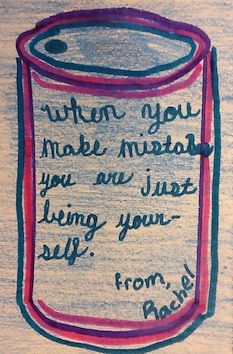 when you
make mistakes
you are just
being your-
self.
from,
Rachel